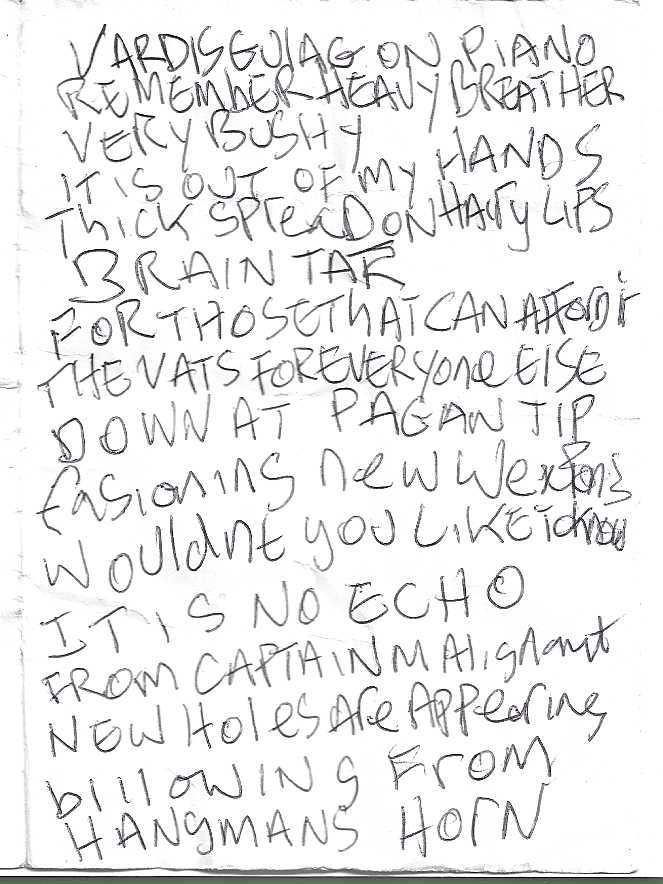 VARDIS GUIAG ON PIANO
REMEMBER HEAVY BREATHER
VERY BUSHY
IT IS OUT OF MY HANDS
THICK SPREAD ON HAIRY LIPS
BRAIN TAR
FOR THOSE THAT CAN AFFORD it
THE VATS FOR EVERYONE ELSE
DOWN AT PAGAN TIP
fasioning new
wouldnt you LIKE To know
IT IS NO ECHO
FROM CAPTAIN MAlignant
NEW HOles Are Appearing
billowing FROM
HANGMANS HORN